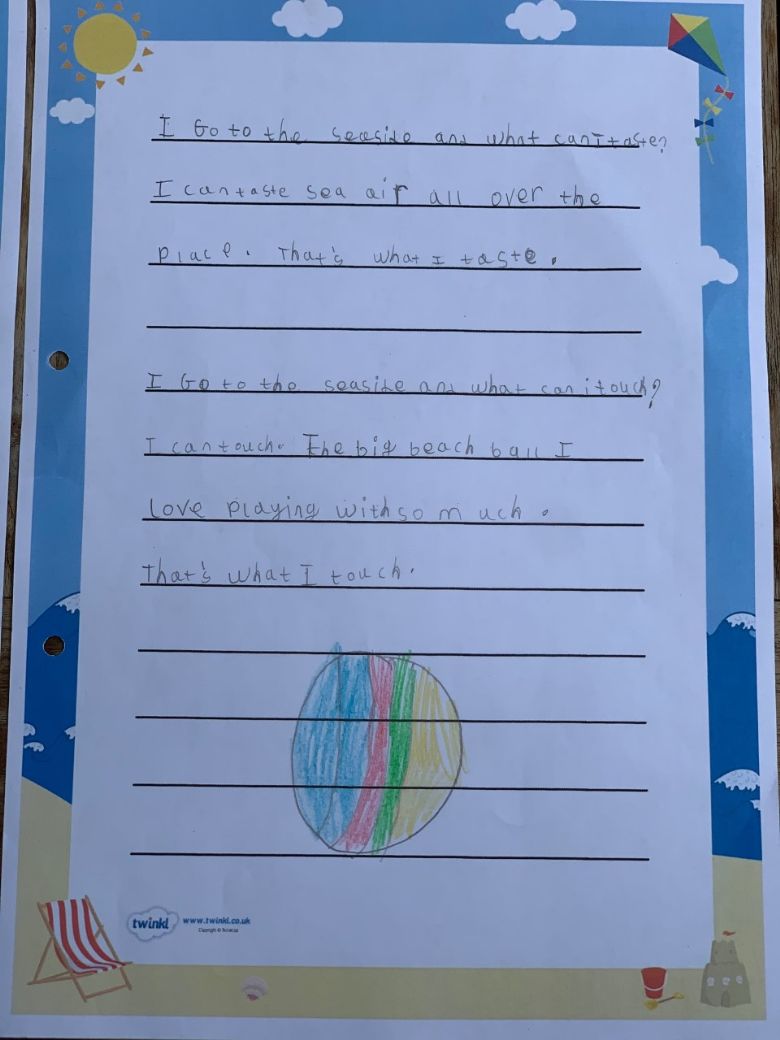 I Go to the seaside and what can I taste?
I can taste sea air all over the
place. That's what I taste.
I Go to the seaside and what can i touch?
I can touch. The big beach ball I
love playing with so much.
That's what I touch.
twinkl
www.twinkl.co.uk